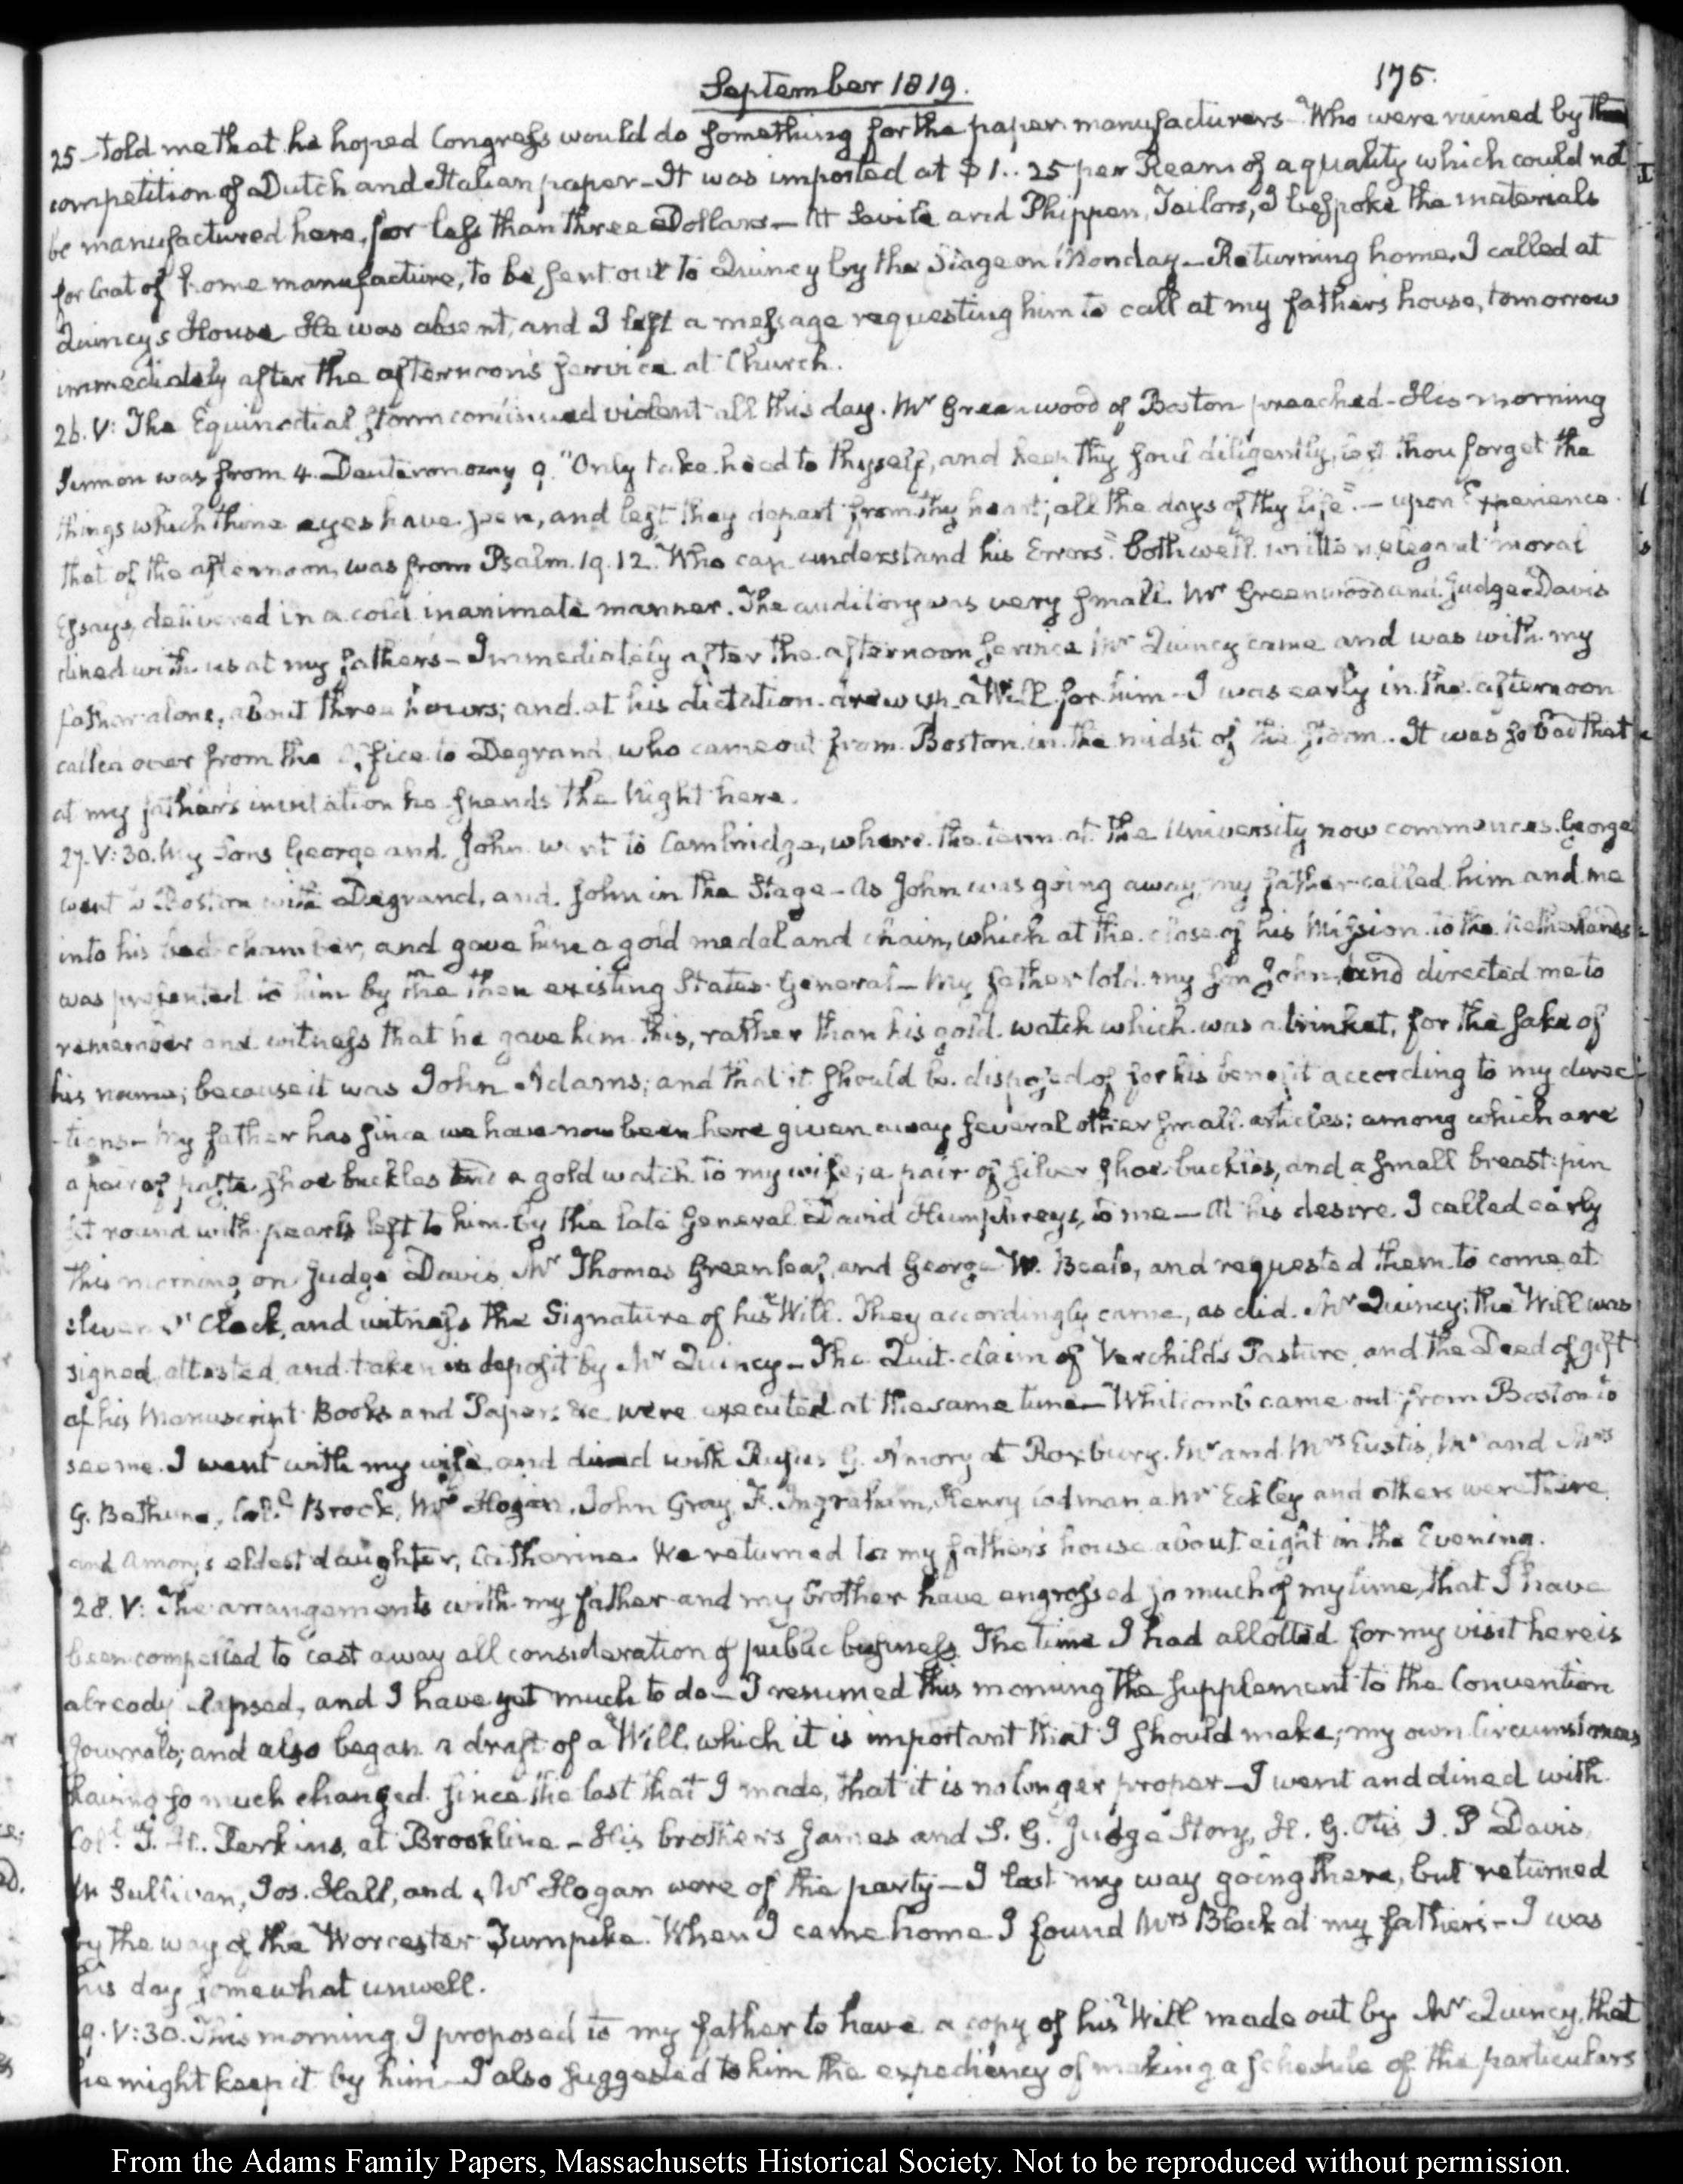 September 1819.
175.
25 — told me that he hoped Congress would do something for the paper manufacturers — Who were ruined by the
competition of Dutch and Italian paper — It was imported at $1..25 per Ream of a quality which could not
be manufactured here, for less than three Dollars — At Savile and Phippen, Tailors, I bespoke the materials
for Coat of home manufacture, to be sent out to Quincy by the Stage on Monday — Returning home, I called at
Quincy's House He was absent, and I left a message requesting him to call at my father's house, tomorrow
immediately after the afternoon's service at Church.
26. V: The Equinoctial storm continued violent all this day. Mr Greenwood of Boston preached — His morning
Sermon was from 4. Deuteronomy 9. "Only take heed to thyself, and keep thy soul diligently, lest thou forget the
things which thine eyes have seen, and lest they depart from thy heart; all the days of thy life" — upon Experience.
that of the afternoon, was from Psalm. 19. 12. "Who can understand his Errors." both well written, elegant moral
Essays, delivered in a cold inanimate manner. The auditory was very small. Mr Greenwood and Judge Davis
dined with us at my father's — Immediately after the afternoon service Mr Quincy came and was with my
father alone, about three hours; and at his dictation drew up a Will for him — I was early in the afternoon
called over from the Office to Degrand, who came out from Boston in the midst of the storm. It was so bad that
at my father's invitation he spends the Night here.
27. V:30. My Sons George and John went to Cambridge, where the term at the University now commences. George
went to Boston with Degrand, and John in the Stage — As John was going away, my father called him and me
into his bed chamber, and gave him a gold medal and chain, which at the close of his Mission to the Netherlands
was presented to him by the then existing States General — My father told my Son John, and directed me to
remember and witness that he gave him this, rather than his gold watch which was a trinket, for the sake of
his name; because it was John Adams; and that it should be disposed of for his benefit according to my direc-
-tions — My father has since we have now been here given away several other small articles; among which are
a pair of paste shoe buckles and a gold watch to my wife; a pair of silver shoe buckles, and a small breast-pin
set round with pearls left to him by the late General David Humphreys, to me — At his desire I called early
this morning on Judge Davis, Mr Thomas Greenleaf, and George W. Beale, and requested them to come at
eleven O'Clock, and witness the Signature of his Will. They accordingly came, as did Mr Quincy; the Will was
signed, attested, and taken in deposit by Mr Quincy — The Quit-claim of Verchild's Pasture, and the Deed of gift
of his Manuscript Books and Papers &c were executed at the same time — Whitcomb came out from Boston to
see me. I went with my wife, and dined with Rufus G. Amory at Roxbury. Mr and Mrs Eustis, Mr and Mrs
G. Bethune, Brock, Mr Hogan, John Gray, F. Ingraham, Henry Codman, a Mr Eckley and others were there.
and Amory's eldest daughter, Catherine. We returned to my father's house about eight in the Evening.
28. V: The arrangements with my father and my brother have engrossed so much of my time, that I have
been compelled to cast away all consideration of public business. The time I had allotted for my visit here is
already elapsed, and I have yet much to do — I resumed this morning the supplement to the Convention
Journals; and also began a draft of a Will, which it is important that I should make; my own circumstances
having so much changed since the last that I made, that it is no longer proper — I went and dined with
Col. T. H. Perkins, at Brookline — His brothers James and S. G. Judge Story, H. G. Otis I. P Davis,
Sullivan, Jos. Hall, and Mr Hogan were of the party — I lost my way going there, but returned
by the way of the Worcester Turnpike. When I came home I found Mrs Black at my father's — I was
this day somewhat unwell.
29. V:30. This morning I proposed to my father to have a copy of his Will made out by Mr Quincy, that
he might keep it by him — I also suggested to him the expediency of making a schedule of the particulars
From the Adams Family Papers, Massachusetts Historical Society. Not to be reproduced without permission.